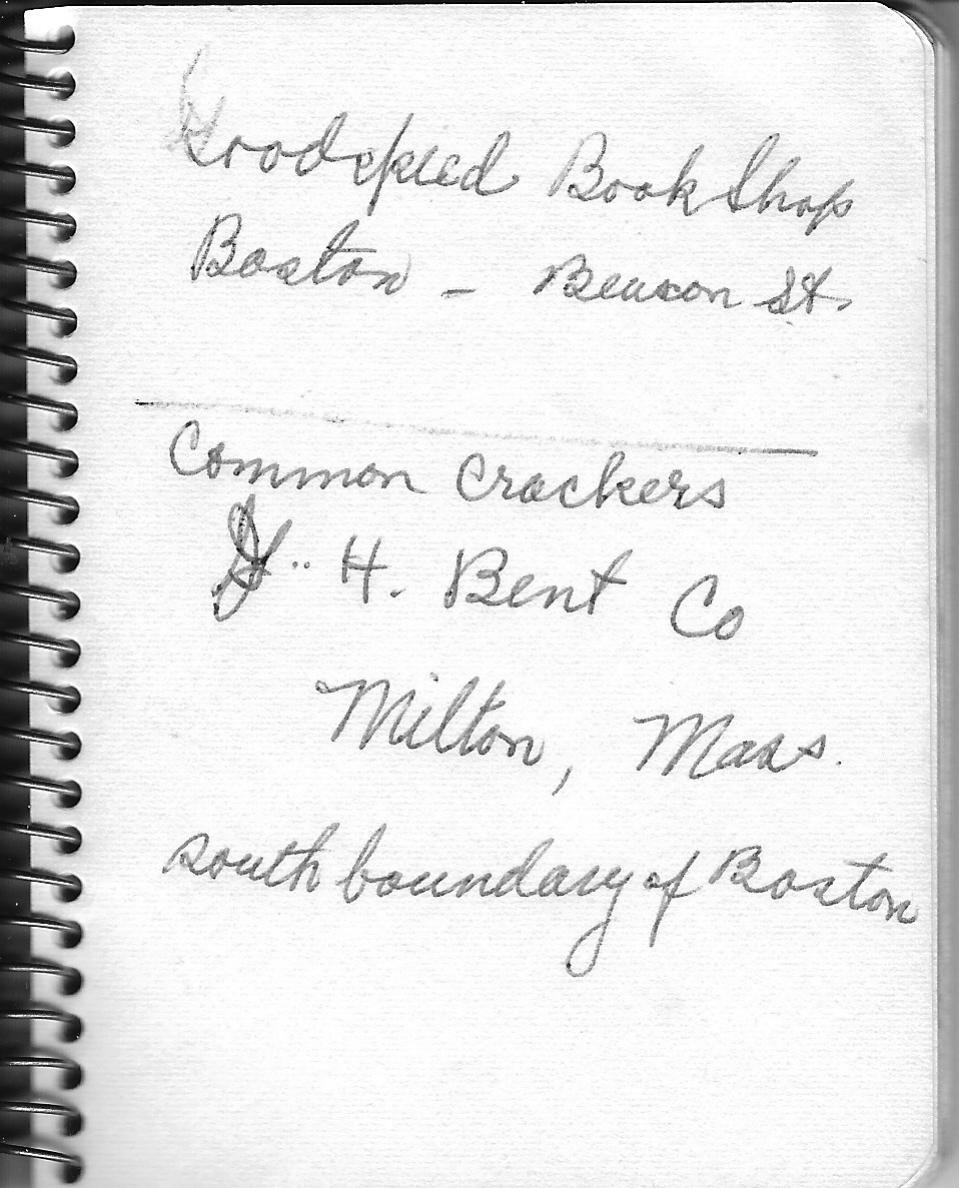 Goodspeed Book Shop
Boston - Beacon St.
Common Crackers
G. H. Bent Co
Milton, Mass.
south boundary of Boston